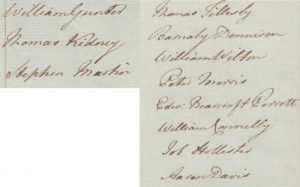 William Gunter
Thomas Kidney
Stephen Martin
Thomas Tilleby
Barnaby Dennison
William Wilton
Peter Morris
Edwd. Bearcroft Perrott
William Connelly
Job Hollister
Aaron Davis